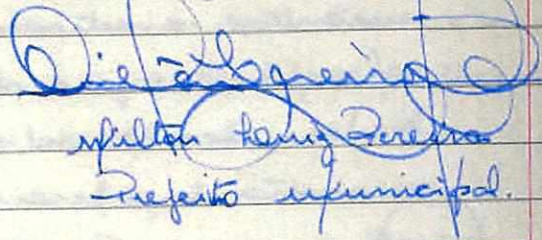 Milton Luiz Pereira
Prefeito Municipal.